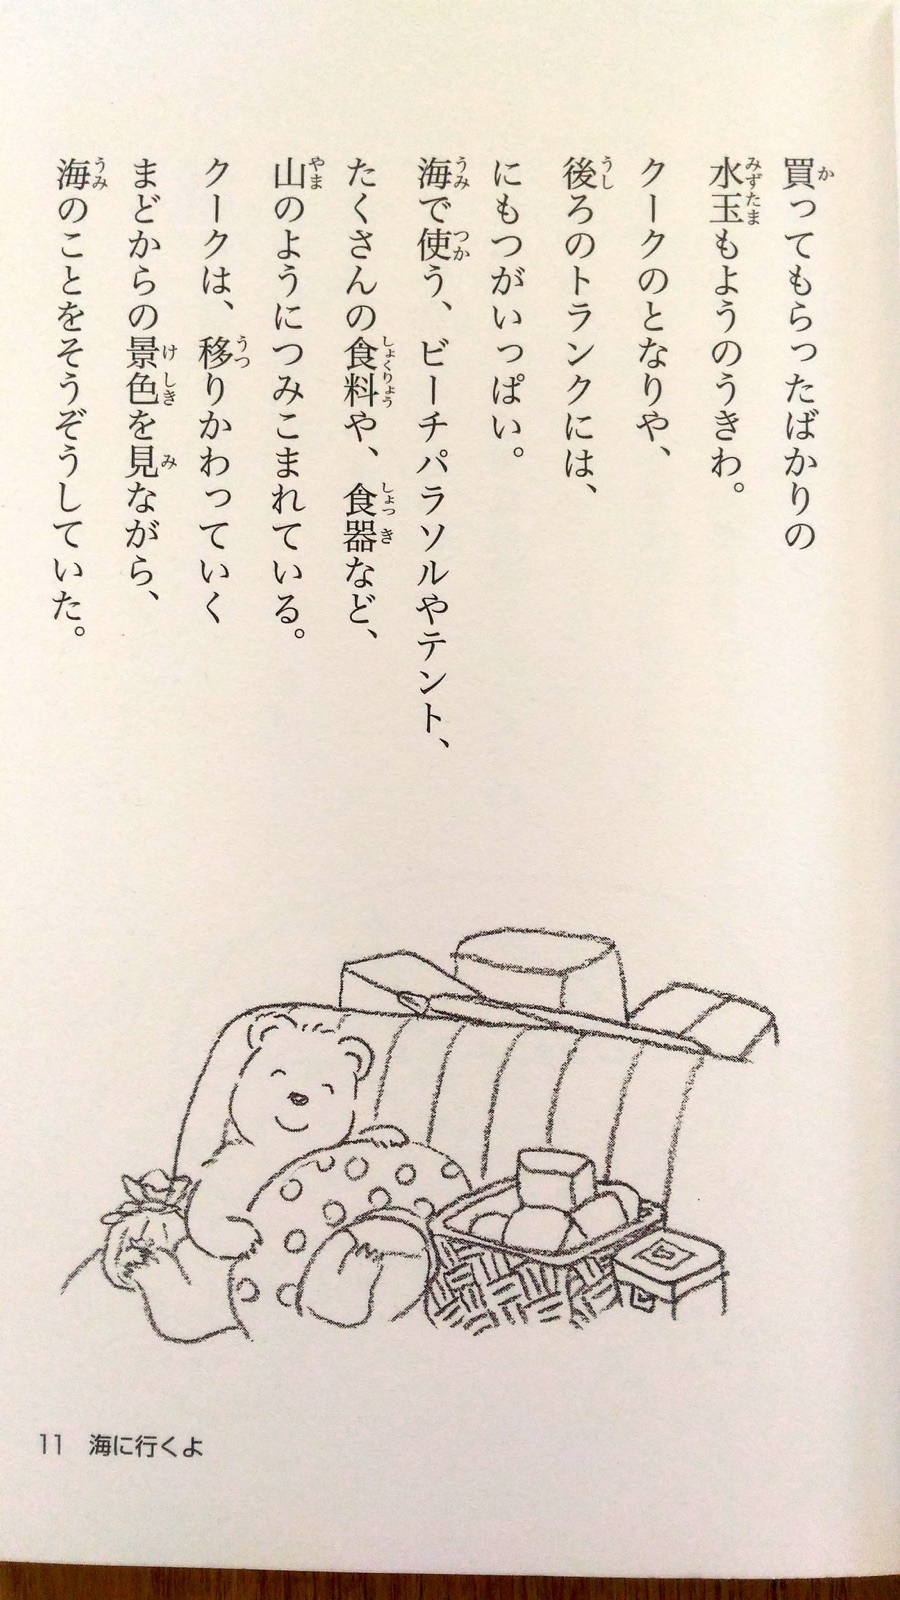 買ってもらったばかりの
水玉もようのうきわ。
クークのとなりや、
後ろのトランクには、
にもつがいっぱい。
海で使う、ビーチパラソルやテント、
たくさんの食料や、食器など、
山のようにつみこまれている。
クークは、移りかわっていく
まどからの景色を見ながら、
海のことをそうぞうしていた。
11 海に行くよ